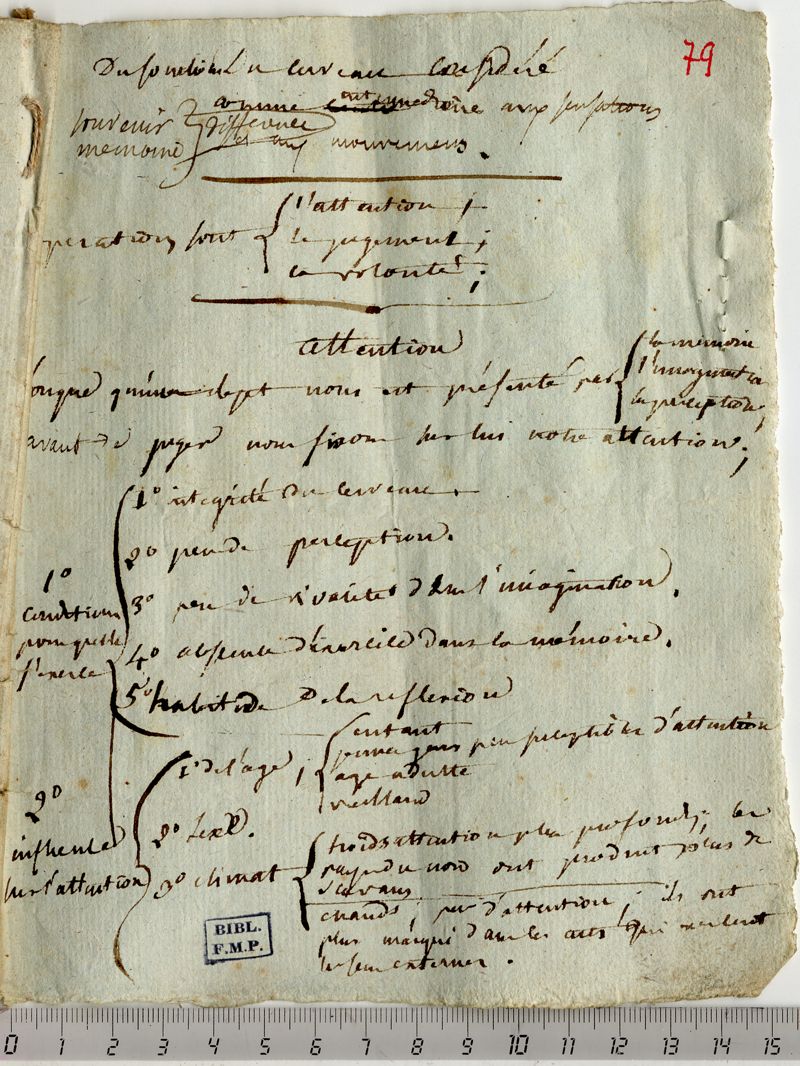 79
Du fonctions du cerveau considéré
comme intermediaire aux sensations
souvenir
memoire
difference
et aux mouvemens.
operations sont
l'attention;
le jugement;
la volonté;
attention
lorsque qu'un objet nous est présenté par
la mémoire
l'imagination
la perception,
avant de juger nous fixons sur lui notre attention;
1º
conditions
pour qu'elle
s'exerce
1º integrité du cerveau.
2º peu de perception.
3º peu de vivacité dans l'imagination.
4º absence d'exercice dans la mémoire.
5º habitude de la reflexion
2º
influence
sur l'attention
1º de l'age;
enfant
jeunes gens peu susceptibles d'attention
age adulte
vieillard
2º sexe.
3º climat
froids attention plus profonde; les
pays du nord ont produit plus de
savans
chauds; peu d'attention; ils ont
plus marqué dans les arts qui
les sens externes.
BIBL.
F.M.P.
0 1 2 3 4 5 6 7 8 9 10 11 12 13 14 15